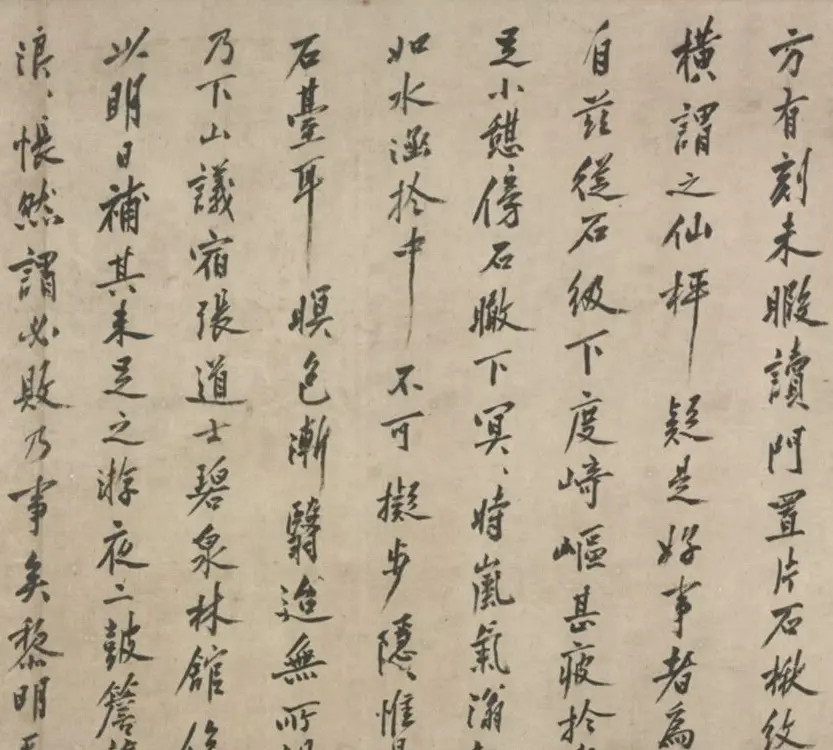 方有刻未暇讀門置片石楸紋
橫謂之仙枰疑是好事者為
自茲從石級下度崎嶇甚疲於
足小憩傍石瞰下冥〻時嵐氣滃
如水涵於中不可擬步隱〻惟見
石臺耳暝色漸翳迨無所
乃下山議宿張道士碧泉林館
以明日補其未足之游夜二鼓簷
浪〻悵然謂必敗乃事矣黎明